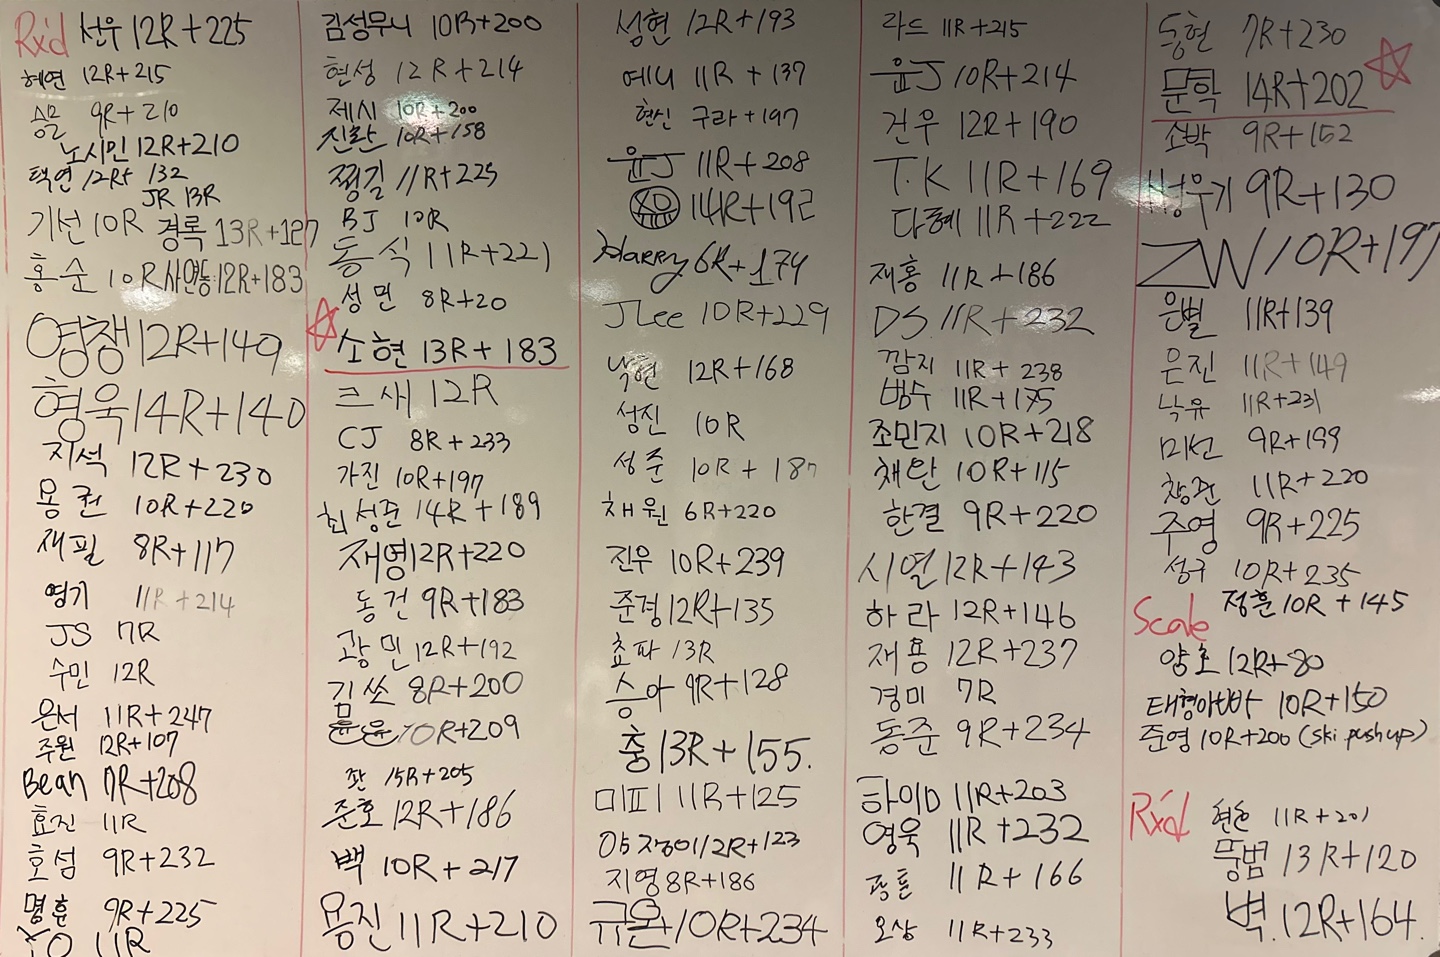 Rx'd 선우 12R+225
혜연 12R+215
승모 9R+210
노시민 12R+210
택연 12R+ 132
JR 13R
기선 10R 경록 13R+127
홍순 10R 사연동:12R+183
영챙 12R+149
형욱 14R+140
지석 12R+230
용권 10R+220
재필 8R+117
영기 11R+214
JS 7R
수민 12R
은서 11R+247
주원 12R+107
Bean 7R+208
효진 11R
호섬 9R+232
명훈 9R+225
11R
김성무니 10R+200
현성 12R+214
제시 10R+200
진란 10R+158
쩡길 11R+225
BJ 10R
동식 11R+221
성면 8R+20
소현 13R+183
크새 12R
CJ 8R+233
가진 10R+197
최성준 14R+189
재영 12R+220
동건 9R+183
광민 12R+192
김쏘 8R+200
윤윤 10R+209
좐 15R+205
준호 12R+186
백 10R+217
용진 11R+210
성현 12R+193
예니 11R+137
현신 구라+197
윤J 11R+208
14R+192
Harry 6R+174
JLee 10R+229
낙현 12R+168
성진 10R
성준 10R+187
채원 6R+220
진우 10R+239
준경 12R+135
쵸파 13R
승아 9R+128
충 13R+155.
미피 11R+125
야쟁이 12R+123
지영 8R+186
규온 10R+234
라드 11R+215
윤J 10R+214
건우 12R+190
T.K 11R+169
다혜 11R+222
재홍 11R+186
DS 11R+232
깜지 11R+238
범수 11R+175
조민지 10R+218
채란 10R+115
한결 9R+220
시열 12R+143
하라 12R+146
재용 12R+237
경미 7R
동준 9R+234
하이D 11R+203
영욱 11R+232
광훈 11R+166
오상 11R+233
동현 7R+230
문학 14R+202
소박 9R+152
성우기 9R+130
ZW 10R+197
은별 11R+139
은진 11R+149
낙유 11R+231
미선 9R+199
창준 11R+220
주영 9R+225
성구 10R+235
정훈 10R+145
Scale
양초 12R+80
태형아빠 10R+150
준영 10R+200 (ski push up)
Rx'd 현호 11R+201
뚱범 13R+120
벽. 12R+164.